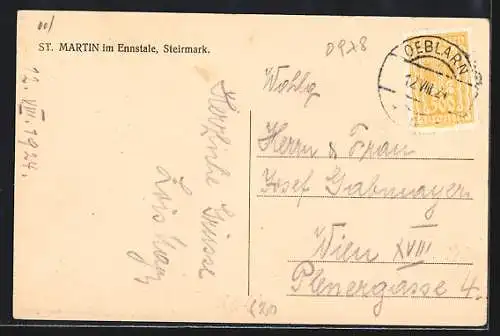 ST. MARTIN im Ennstale, Steiermark.
12. VIII. 1924.
Herzliche Grüsse
0978
OEBLARN
12.VIII.24
Wohlg
Herrn & Frau
Josef Gabmayer
Wien XVIII
Plenergasse 4.